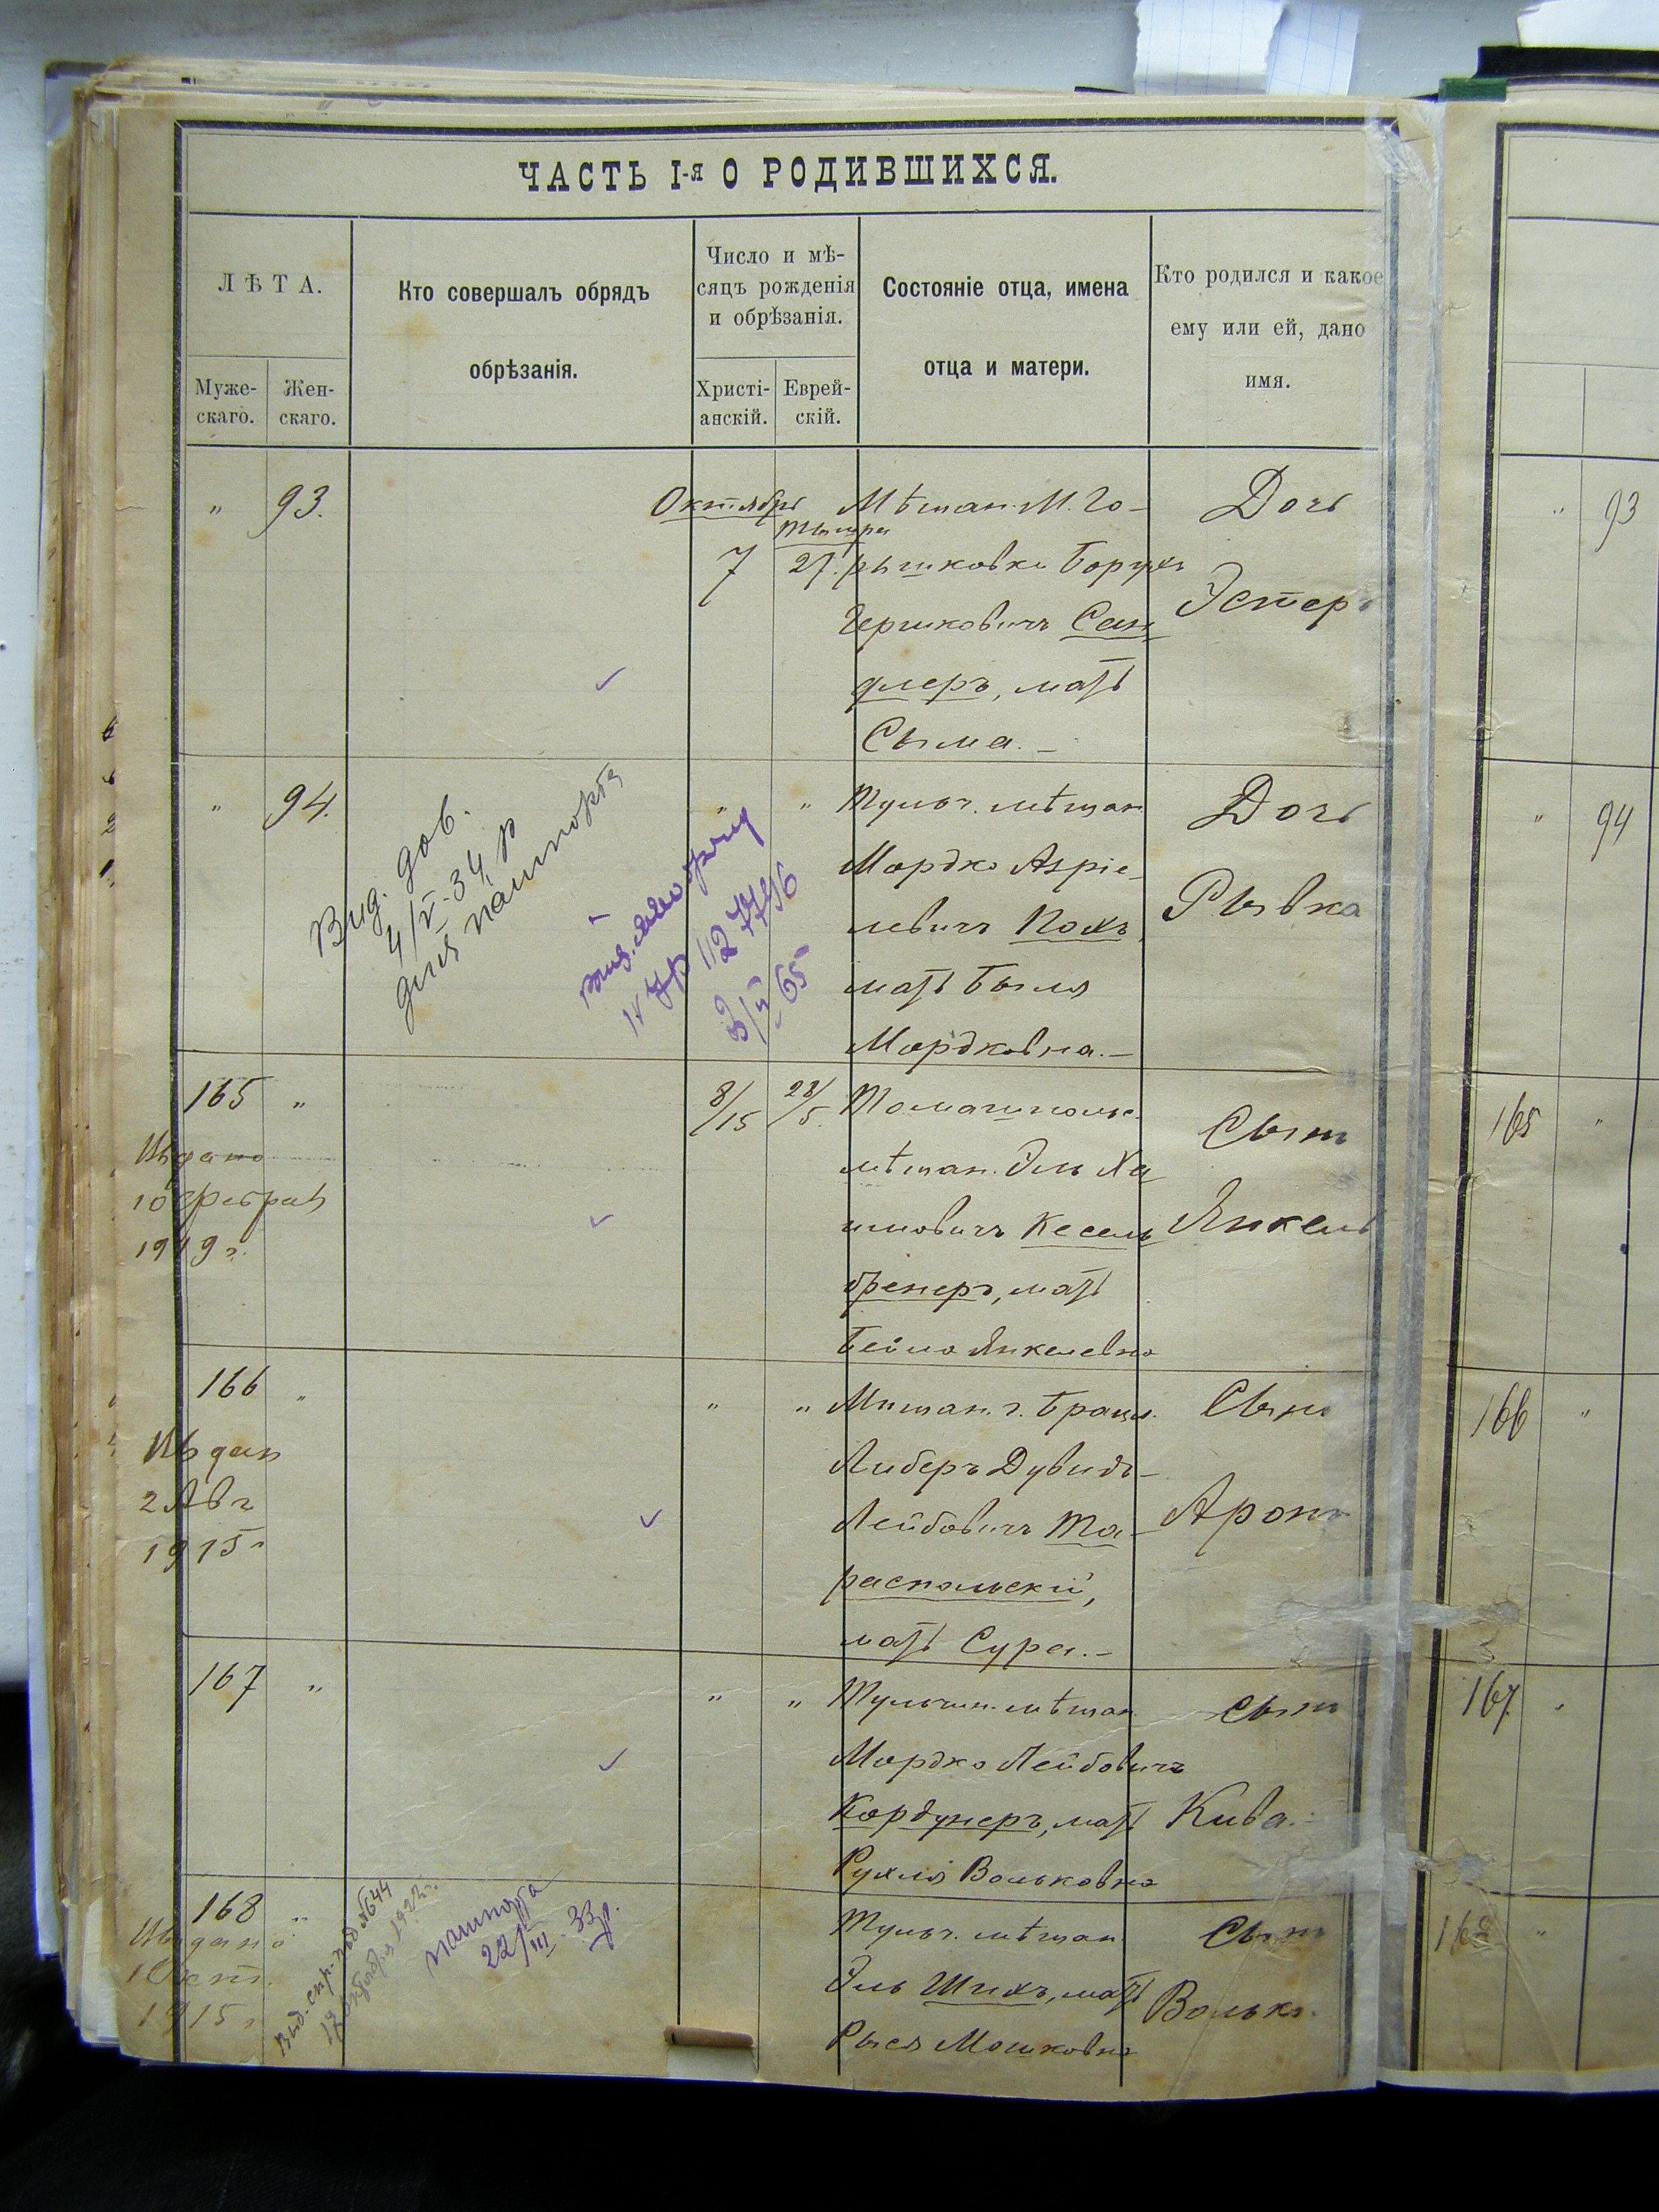 ЧАСТЬ I-я О РОДИВШИХСЯ.
ЛѢТА.
Муже-
скаго.
Жен-
скаго.
Кто совершалъ обрядъ
обрѣзанія.
Число и мѣ-
сяцъ рожденія
и обрѣзанія.
Христі-
анскій.
Еврей-
скій.
Состояніе отца, имена
отца и матери.
Кто родился и какое
ему или ей, дано
имя.
" 93.
Октябрь
Тышри
7 27.
Мѣщан. М. Го-
рышковки Борухъ
Гершковичъ Сан
длеръ, мать
Сыма. –
Дочь
Эстеръ
" 94.
Вид. дов.
4/V-34 р
для пашпорта
3/V 65
" "
Тульч. мѣщан
Мордко Азріе-
левичъ Кохъ,
мать Быля
Мордковна. –
Дочь
Рывка
165 "
Выдано
10 февраля
1919 г.
8/15 28/5.
Томашполь.
мѣщан. Эль Ха
имовичъ Кесель
бренеръ, мать
Бейла Янкелевна
Сынъ
Янкель
166 "
Выдан
2 Авг
1915 г
" "
Мѣщан. г. Брацл.
Либеръ Дувидъ-
Лейбовичъ Та-
распольскій,
мать Сура. –
Сынъ
Аронъ
167 "
" "
Тульчин. мѣщан.
Мордко Лейбовичъ
Кордунеръ, мать
Рухля Вольковна
Сынъ
Кива. –
168 "
Выдано
1 Окт.
1915 г
Выд. спр. под №644
пашпорта
22/III 33 р.
Тульч. мѣщан
Эль Шихъ, мать
Рыся Мошковна
Сынъ
Волько.
" 93
" 94
165 "
166 "
167. "
168 "